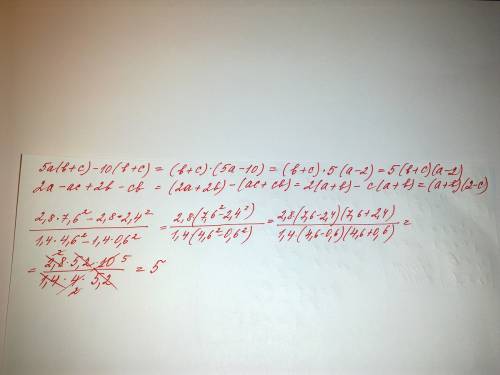 5a(в+c)-10(в+c) = (в+c)·(5a-10) = (в+c)·5(a-2) = 5(в+c)(a-2)
2a-ac+2в-cв = (2a+2в)-(ac+cв) = 2(a+в)-c(a+в) = (a+в)(2-c)
(2,8·7,6²-2,8·2,4²)/(1,4·4,6²-1,4·0,6²) = 2,8(7,6²-2,4²)/1,4(4,6²-0,6²) = 2,8(7,6-2,4)(7,6+2,4)/1,4(4,6-0,6)(4,6+0,6) =
= 2,8·5,2·10/1,4·4·5,2 = 5